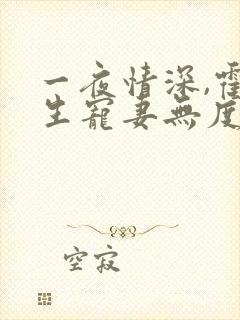 一夜情深,霍
生寵妻無度
空寂